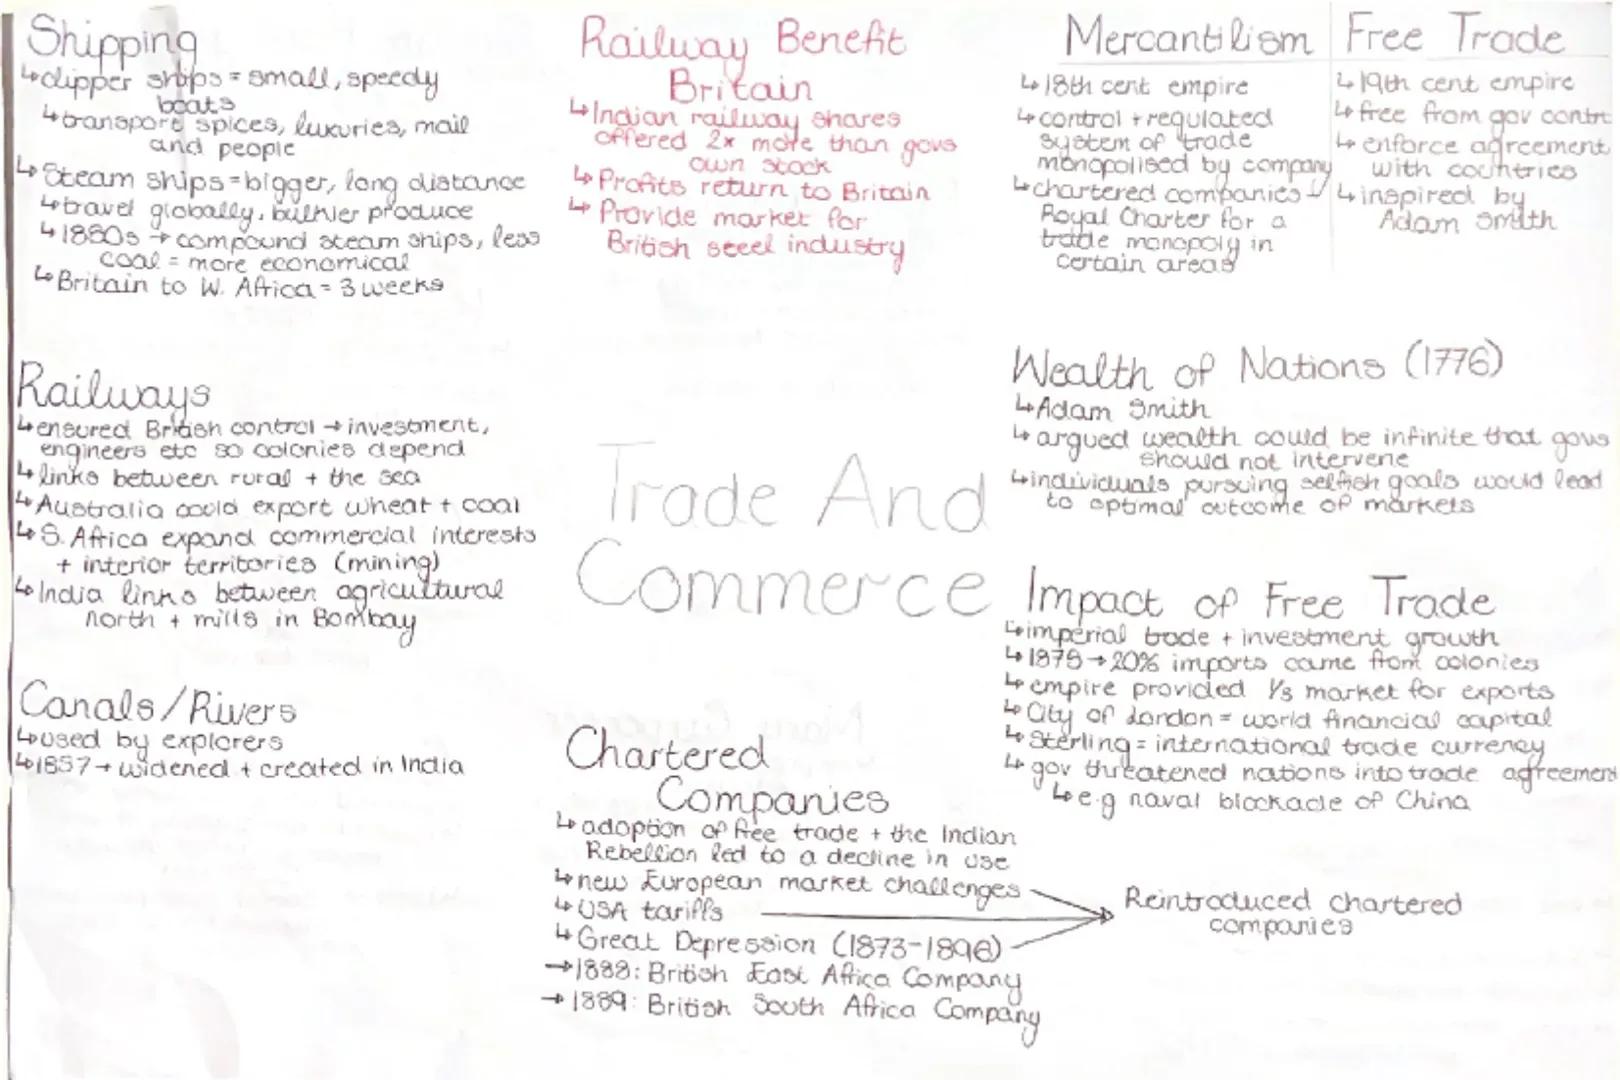 Shipping
↳clipper ships = small, speedy
boats
↳transport spices, luxuries, mail
and people
↳Steam ships = bigger, long distance
↳travel globally, bulkier produce
↳1880s → compound steam ships, less
coal = more economical
↳Britain to W. Africa = 3 weeks
Railways
↳ensured British control → investment,
engineers etc so colonies depend
↳links between rural + the sea
↳Australia could export wheat + coal
↳S. Africa expand commercial interests
+ interior territories (mining)
↳India links between agricultural
north + mills in Bombay
Canals/Rivers
↳used by explorers
↳1857 → widened + created in India
Railway Benefit
Britain
↳Indian railway shares
offered 2x more than govs
own stock
↳Profits return to Britain
↳Provide market for
British steel industry
Trade And
Commerce
Chartered
Companies
↳adoption of free trade + the Indian
Rebellion led to a decline in use
↳new European market challenges
↳USA tariffs
↳Great Depression (1873-1896)
→1888: British East Africa Company
→1889: British South Africa Company
Reintroduced chartered
companies
Mercantilism
↳18th cent empire
↳control + regulated
system of trade
monopolised by company
↳chartered companies -
Royal Charter for a
trade monopoly in
certain areas
Free Trade
↳19th cent empire
↳free from gov contr
↳enforce agreement
with countries
↳inspired by
Adam Smith
Wealth of Nations (1776)
↳Adam Smith
↳argued wealth could be infinite that govs
should not intervene
↳individuals pursuing selfish goals would lead
to optimal outcome of markets
Impact of Free Trade
↳imperial trade + investment growth
↳→ 20% imports came from colonies
↳empire provided 1/3 market for exports
↳City of London = world financial capital
↳Sterling = international trade currency
↳gov threatened nations into trade agreement
↳e.g naval blockade of China